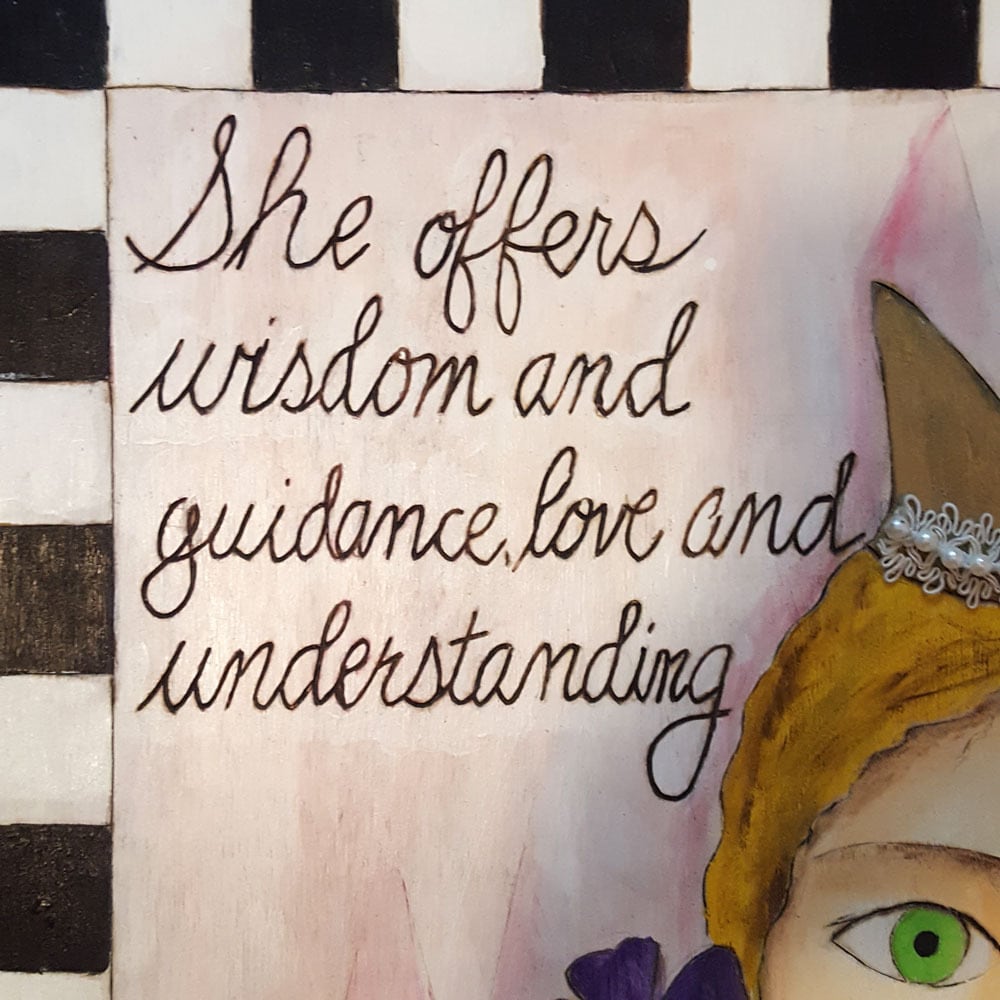 She offers
wisdom and
guidance, love and
understanding